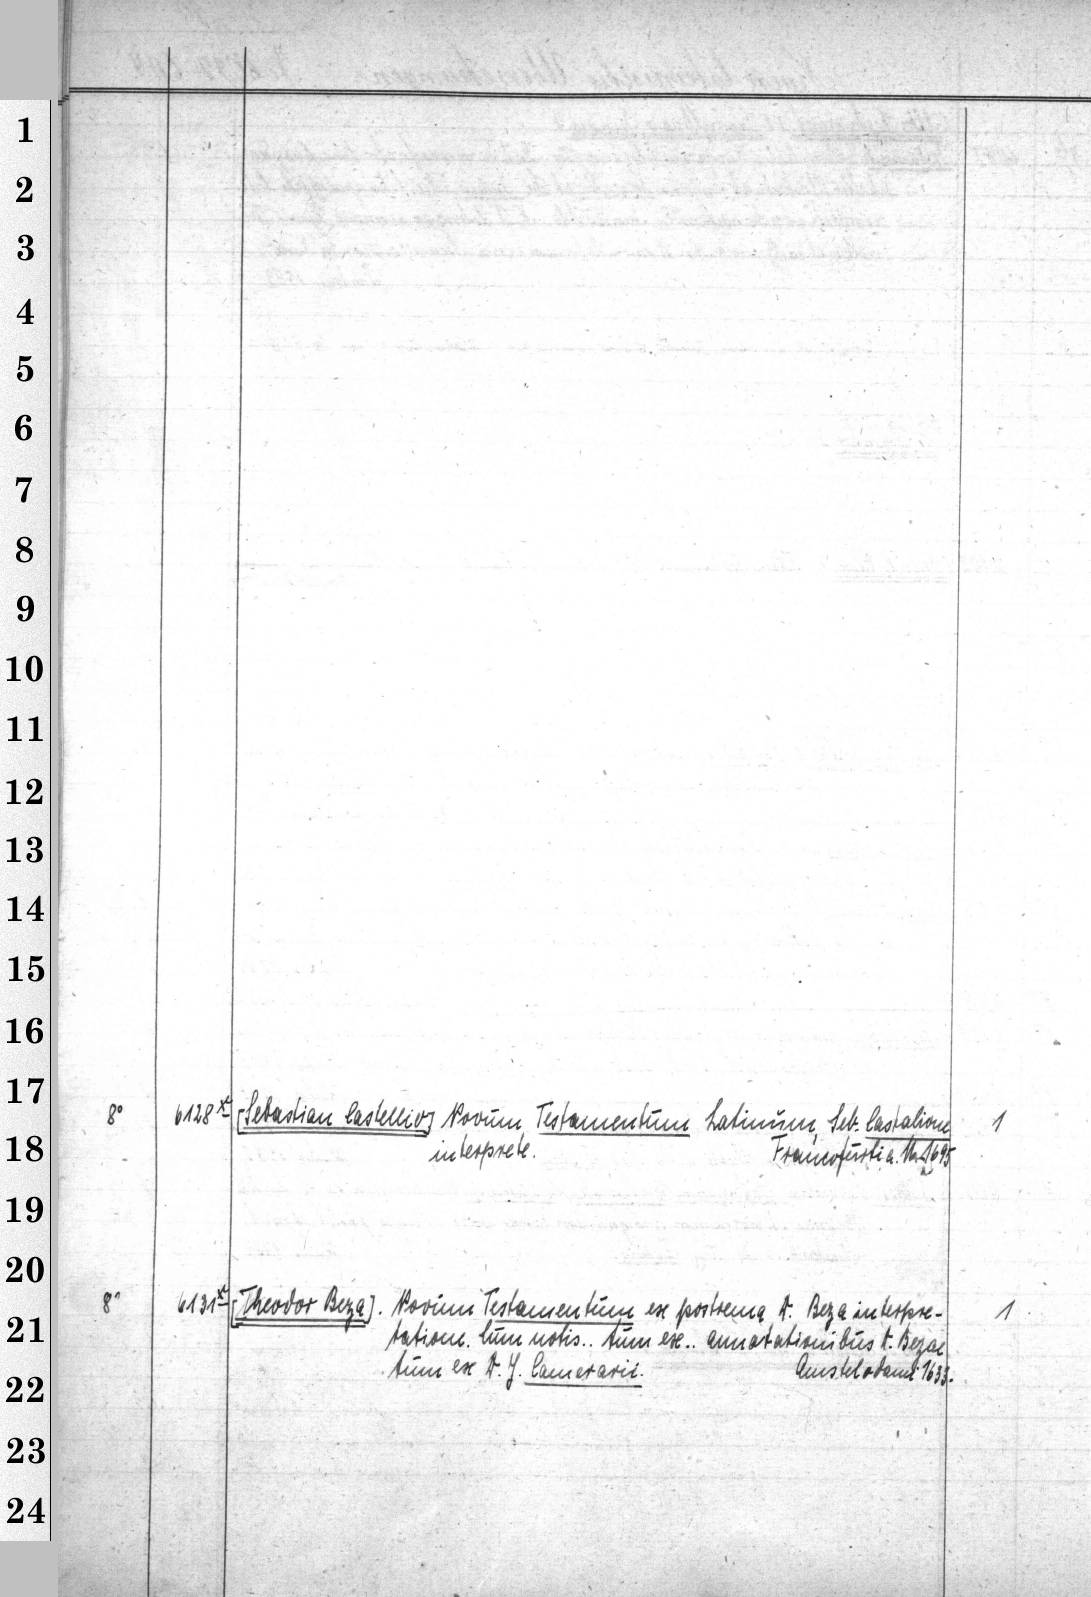 1
2
3
4
5
6
7
8
9
10
11
12
13
14
15
16
17
8° 6128 x [Sebastian Castellio] Novum Testamentum Latinum, Seb. Castalione 1
18
interprete. Francofurti a. M. 1695
19
20
8° 6131 x [Theodor Beza]. Novum Testamentum ex postrema D. Beza interpre- 1
21
tatione. Cum notis.. tum ex.. annotationibus D. Bezae
22
tum ex D. J. Camerarii. Amstelodami 1633.
23
24